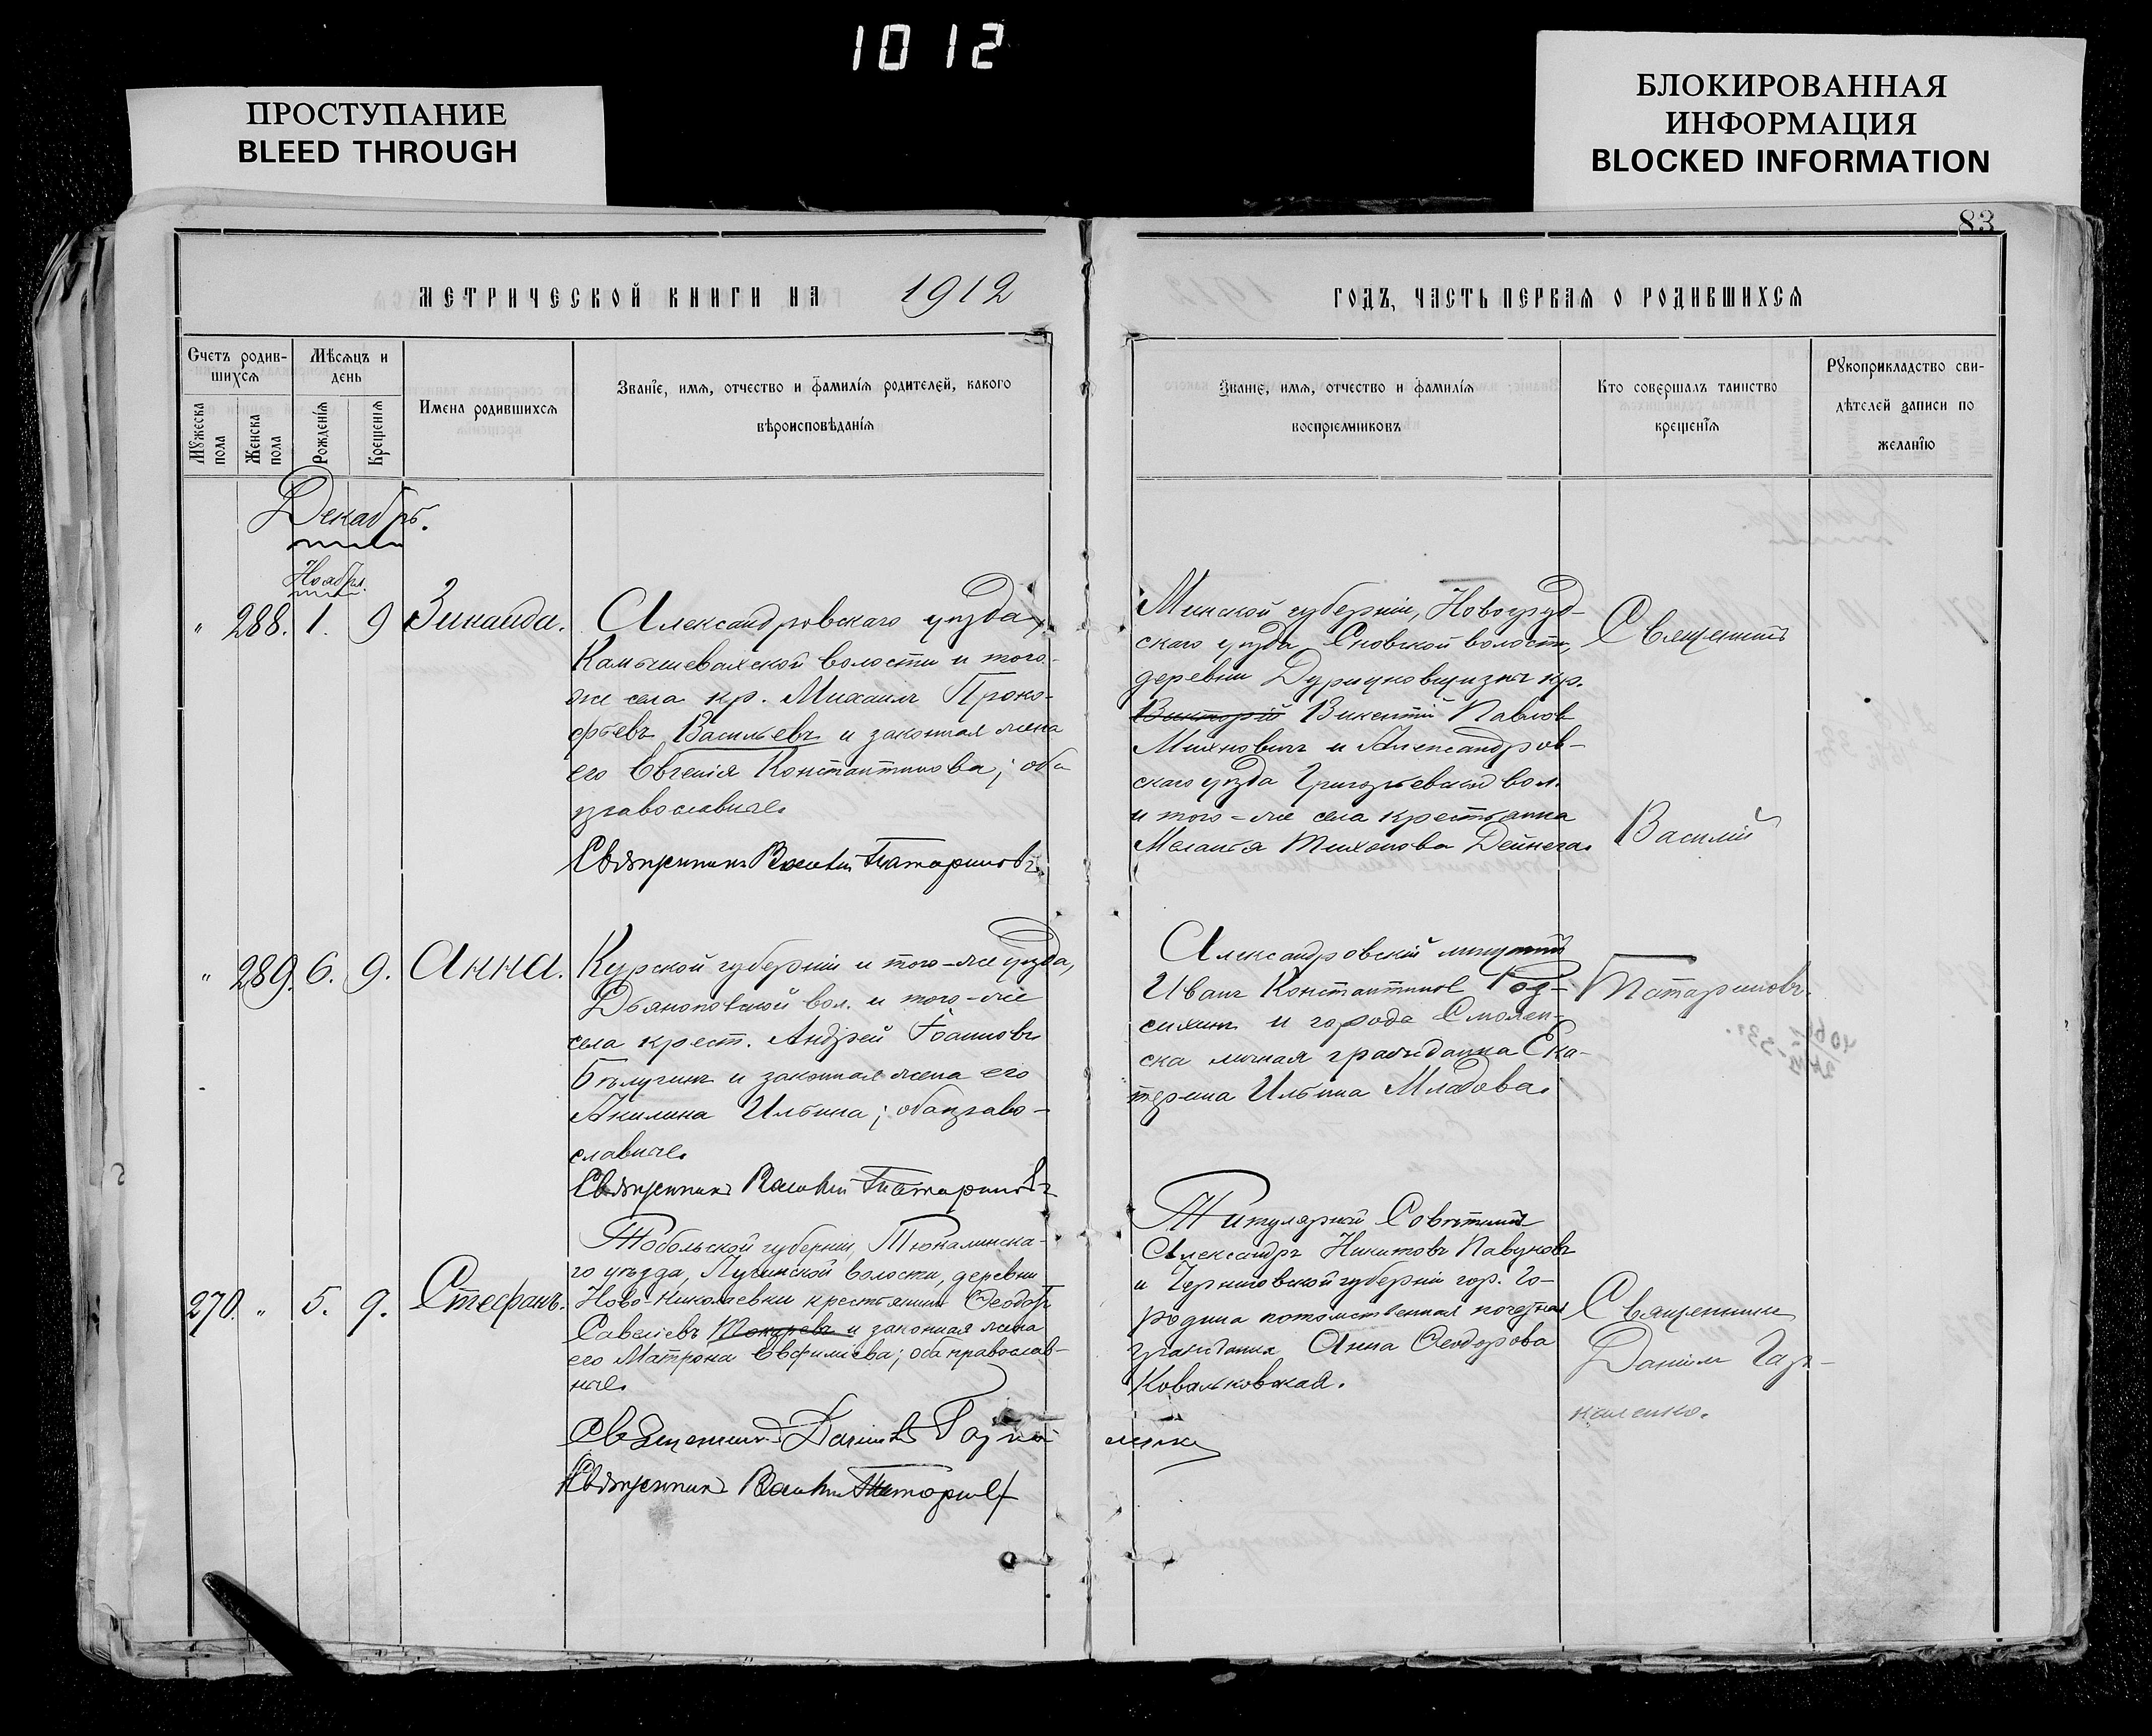 1012
ПРОСТУПАНИЕ
BLEED THROUGH
БЛОКИРОВАННАЯ
ИНФОРМАЦИЯ
BLOCKED INFORMATION
83
МЕТРИЧЕСКОЙ КНИГИ НА 1912
ГОДЪ, ЧАСТЬ ПЕРВАЯ О РОДИВШИХСЯ
Счетъ родив-
шихся
Мѣсяцъ и
день
Мужеска
пола
Женска
пола
Рожденія
Крещенія
Имена родившихся
Званіе, имя, отчество и фамилія родителей, какого
вѣроисповѣданія
Званіе, имя, отчество и фамилія
воспріемниковъ
Кто совершалъ таинство
крещенія
Рукоприкладство сви-
дѣтелей записи по
желанію
Декабрь.
Ноября.
" 288. 1. 9 Зинаида.
Александровскаго уѣзда,
Камышевахской волости и того-
же села кр. Михаилъ Проко-
фьевъ Васильевъ и законная жена
его Евгенія Константинова; оба
православные
Священникъ Василій Татариновъ
Минской губерніи, Новогруд-
скаго уѣзда, Сновской волости,
деревни кр.
Викторій Викентій Павловъ
Михновичъ и Александров-
скаго уѣзда Григорьевской вол.
и того-же села крестьянка
Меланья Тихонова Дейнега.
Священникъ
Василій
Татариновъ.
" 289. 6. 9. Анна.
Курской губерніи и того-же уѣзда,
Дьяконовской вол. и того-же
села крест. Андрей Іоанновъ
Бѣлугинъ и законная жена его
Акилина Ильина; оба право-
славные
Священникъ Василій Татариновъ
Александровскій мѣщанинъ
Иванъ Константинов
и города Смолен-
ска личная гражданка Ека-
терина Ильина Младова.
270. " 5. 9. Стефанъ.
Тобольской губерніи, Тюкалинска-
го уѣзда, волости, деревни
Ново-Николаевки крестьянинъ Ѳеодоръ
Савеліевъ Токаревъ и законная жена
его Матрона Евфиміева; оба православ-
ные
Священникъ Даніилъ Гаркаленко
Священникъ Василій Татаринов
Титулярный Совѣтникъ
Александръ Никитовъ Павуковъ
и Черниговской губерніи гор. Го-
родни потомственная почетная
гражданка Анна Ѳеодорова
Ковальковская.
Священникъ
Даніилъ Гар-
каленко.